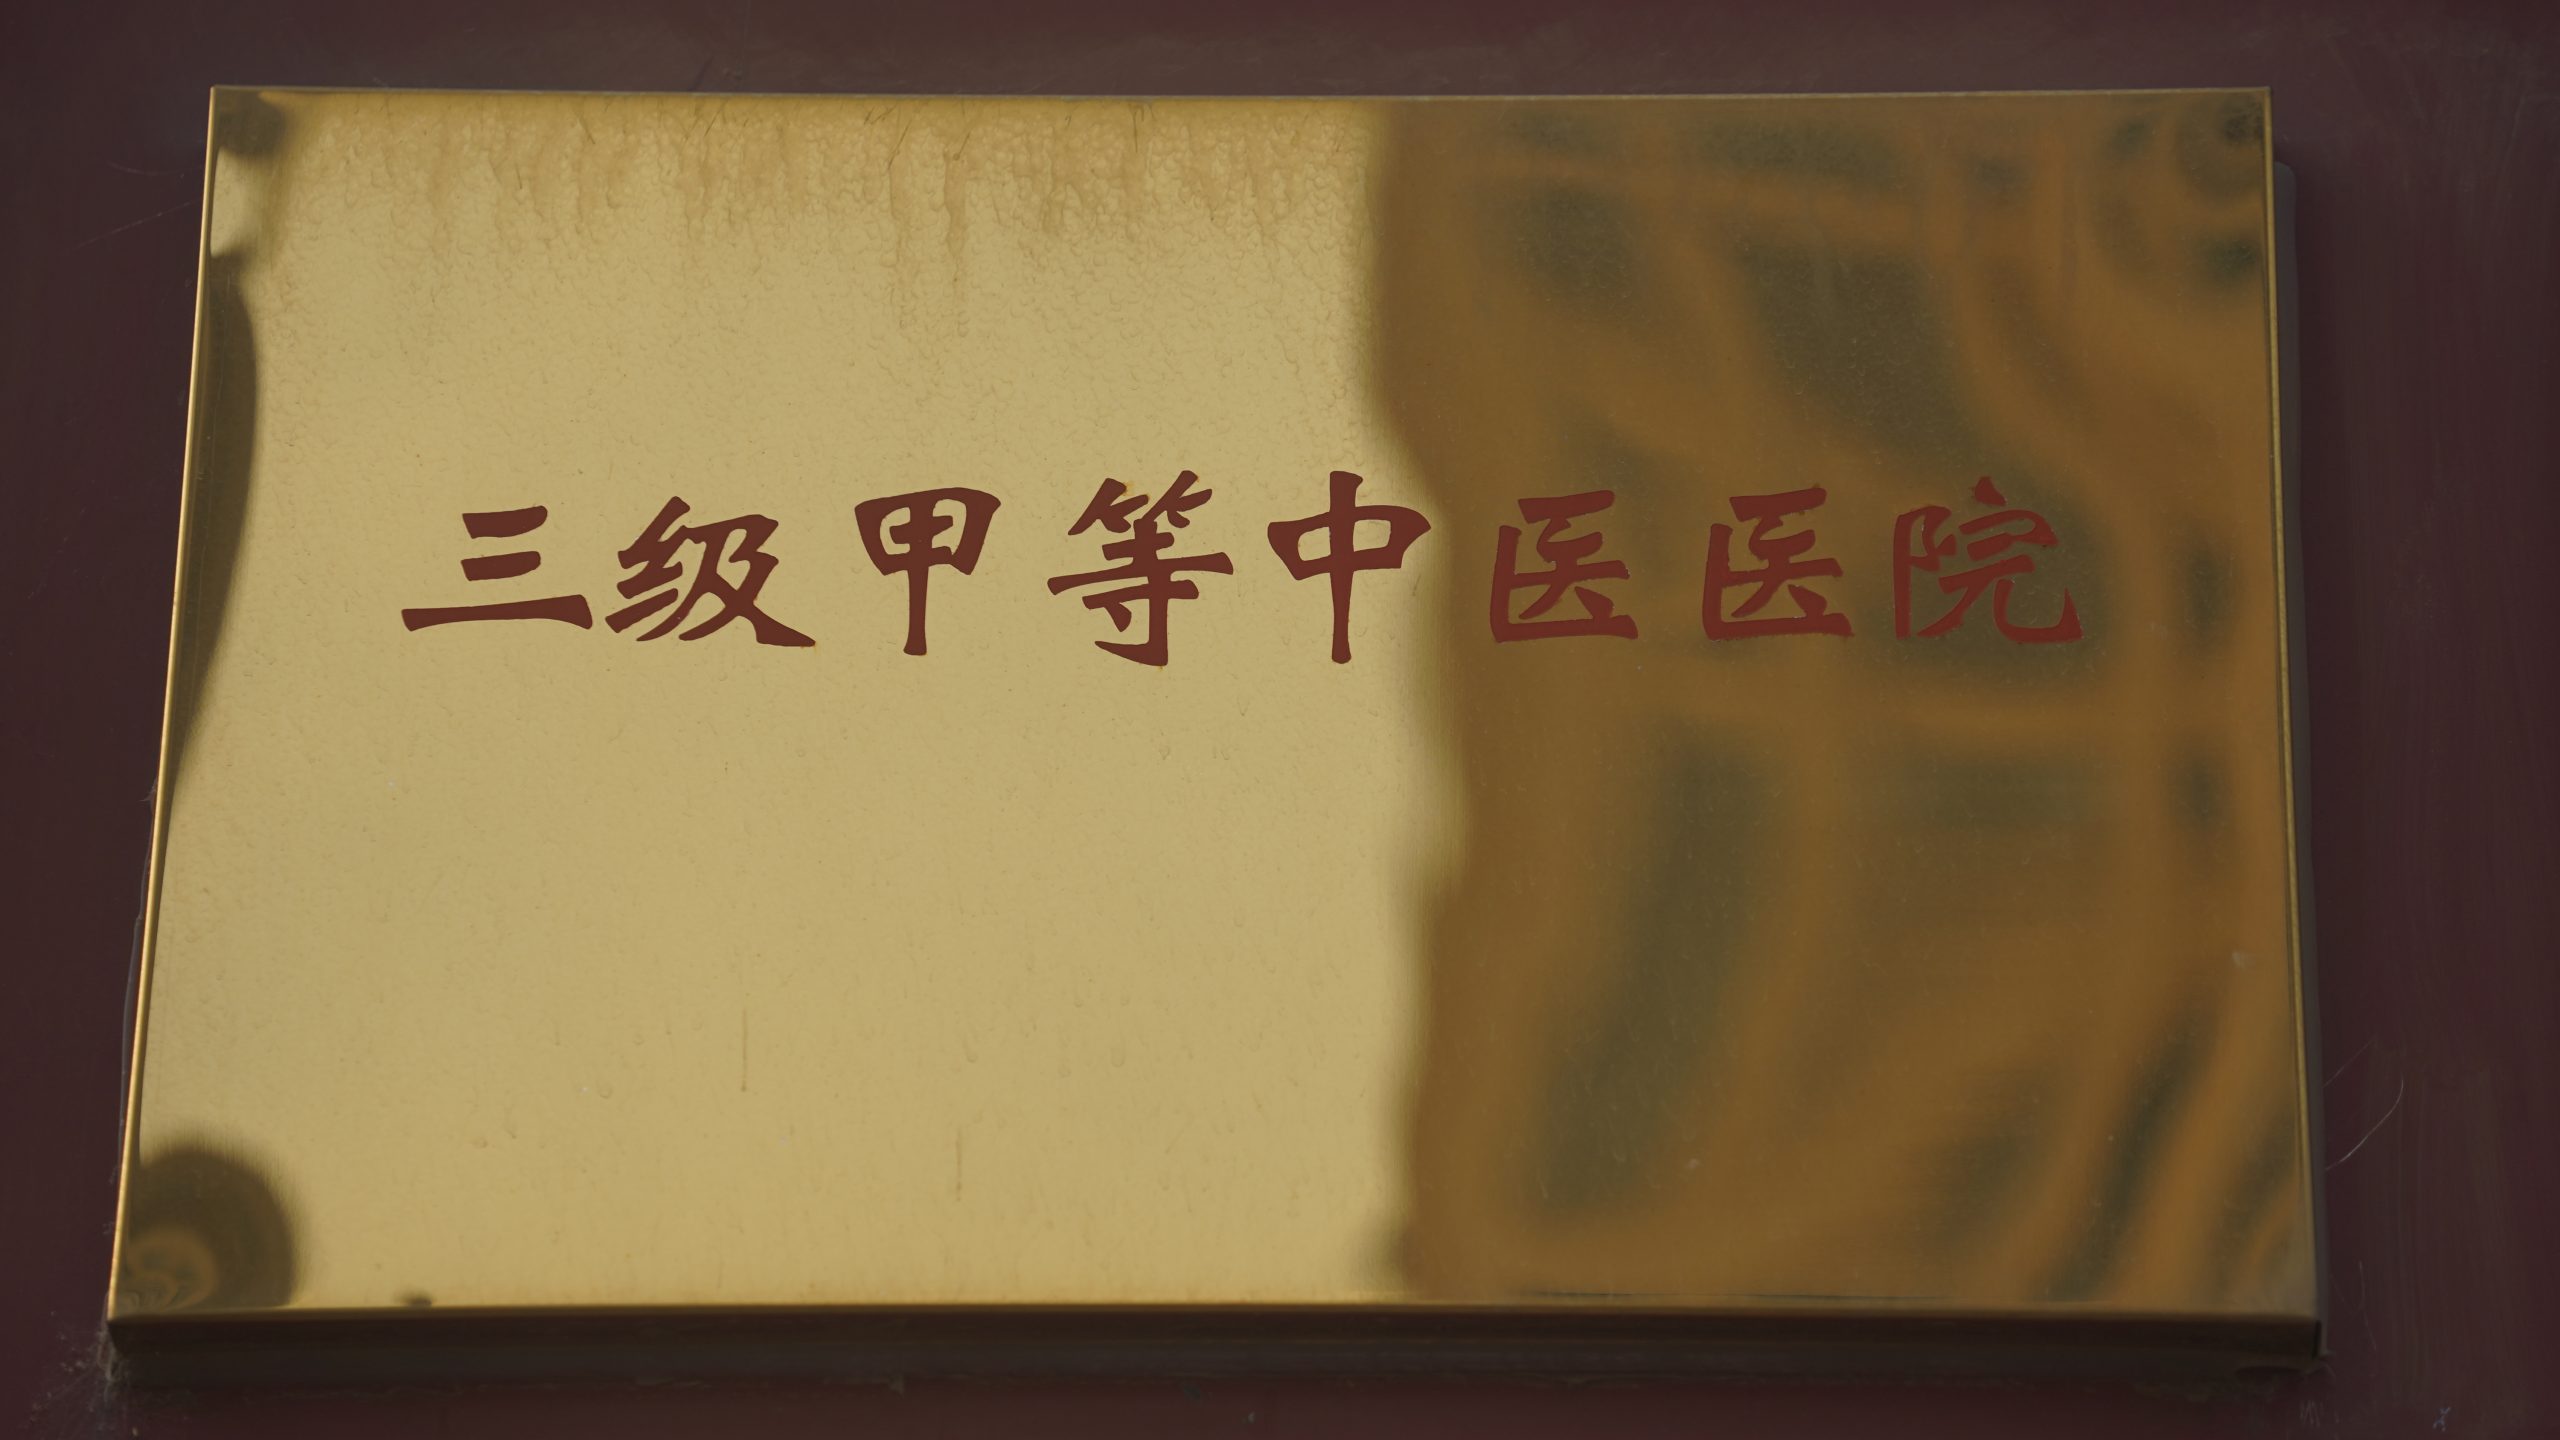 三级甲等中医医院